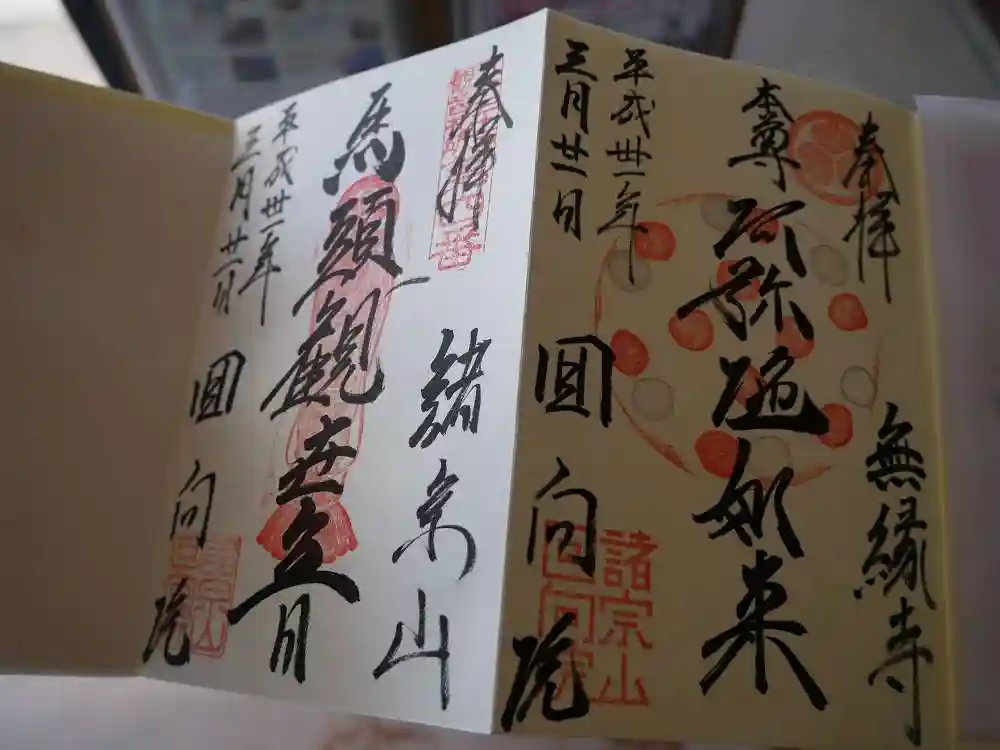 奉拝 無縁寺
本尊 阿弥陀如来
平成卅一年
三月廿一日
囘向院
諸宗山
回向院
奉拝 諸宗山
馬頭觀世音
平成卅一年
三月廿一日
囘向院